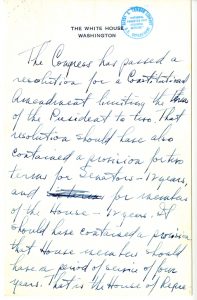 THE WHITE HOUSE
WASHINGTON
The Congress has passed a
resolution for a Constitutional
Amendment limiting the terms
of the President to two. That
resolution should have also
contained a provision for two
terms for Senators - 12 years,
and for members
of the House - 12 years. It
should have contained a provision
that House members should
have a period of service of four
years. That is the House of Repre